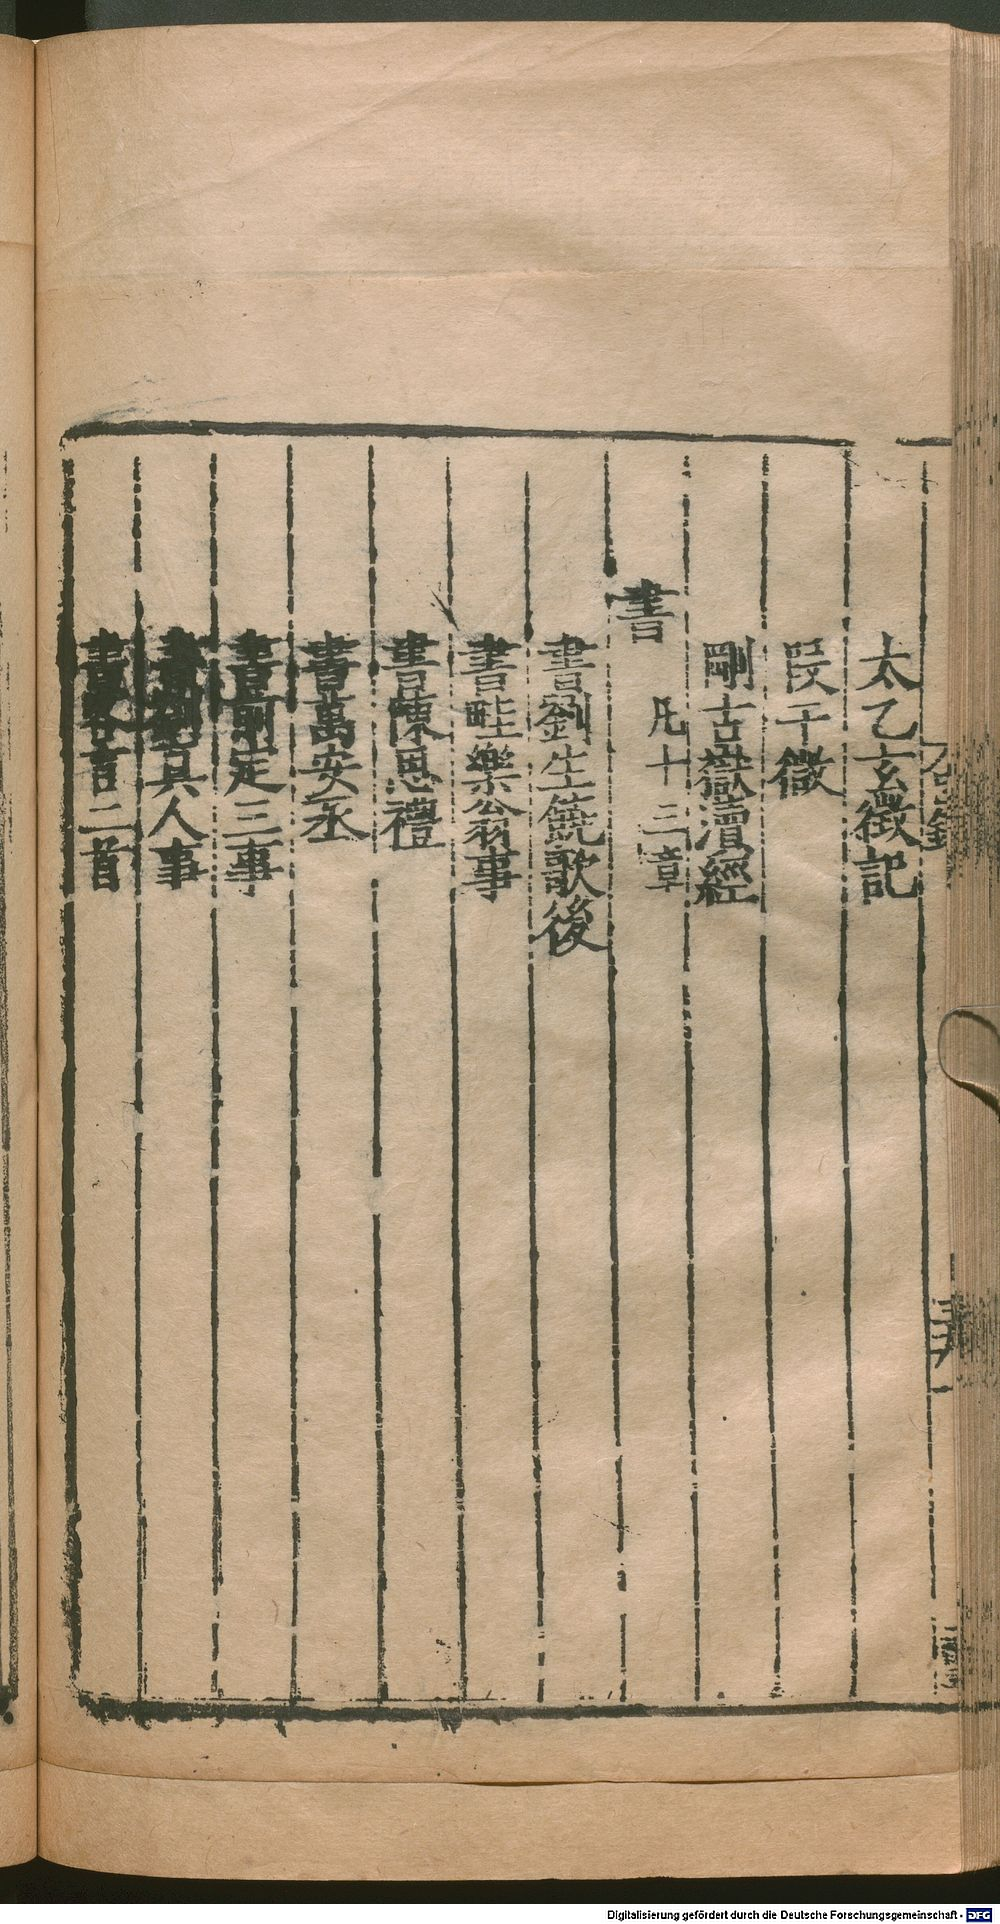 太乙玄徵記
段干微
剛古嶽瀆經
書
凡十三章
書劉生鐃歌後
書畦樂翁事
書陳思禮
書萬安丞
書前定三事
書劉真人事
書客言二首
Digitalisierung gefördert durch die Deutsche Forschungsgemeinschaft - DFG